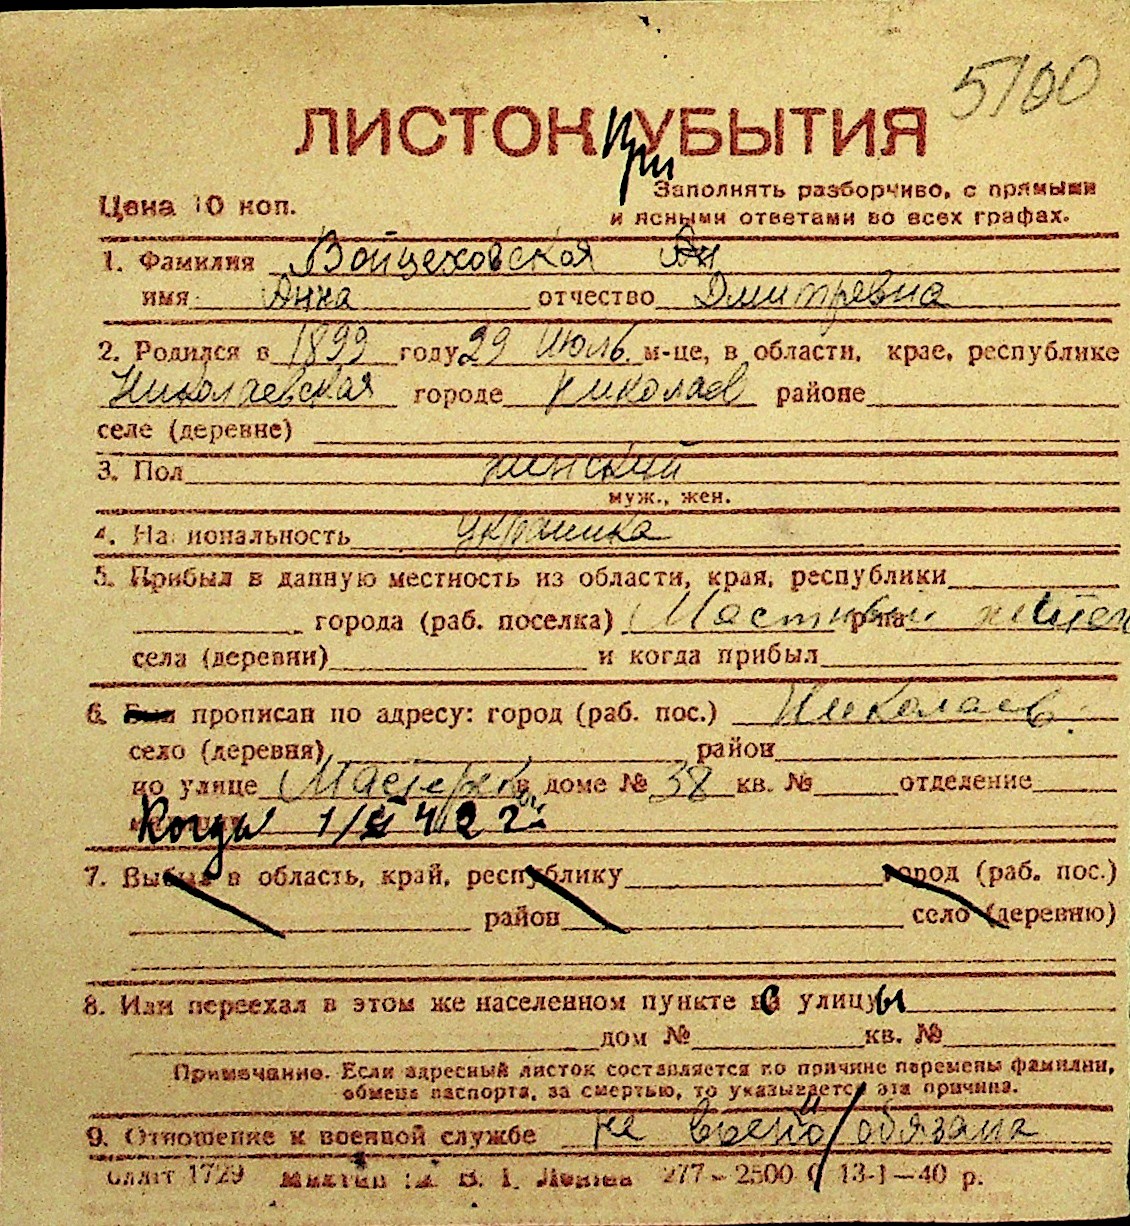 5100
ЛИСТОК при УБЫТИЯ
Цена 10 коп.
Заполнять разборчиво, с прямыми
и ясными ответами во всех графах.
1. Фамилия Войцеховская Ан
имя Анна отчество Дмитревна
2. Родился в 1899 году 29 Июль м-це, в области, крае, республике
Николаевская городе Николаев районе
селе (деревне)
3. Пол женский
муж., жен.
4. Национальность украинка
5. Прибыл в данную местность из области, края, республики
города (раб. поселка) Местный р-на
села (деревни) и когда прибыл
6. Был прописан по адресу: город (раб. пос.) Николаев
село (деревня) район
по улице в доме № 38 кв. № отделение
Когда
7. Выбыл в область, край, республику город (раб. пос.)
район село (деревню)
8. Или переехал в этом же населенном пункте с улицы
дом № кв. №
Примечание. Если адресный листок составляется по причине перемены фамилии,
обмена паспорта, за смертью, то указывается эта причина.
9. Отношение к военной службе не военнообязана
1729 277 – 2500 13-1—40 р.